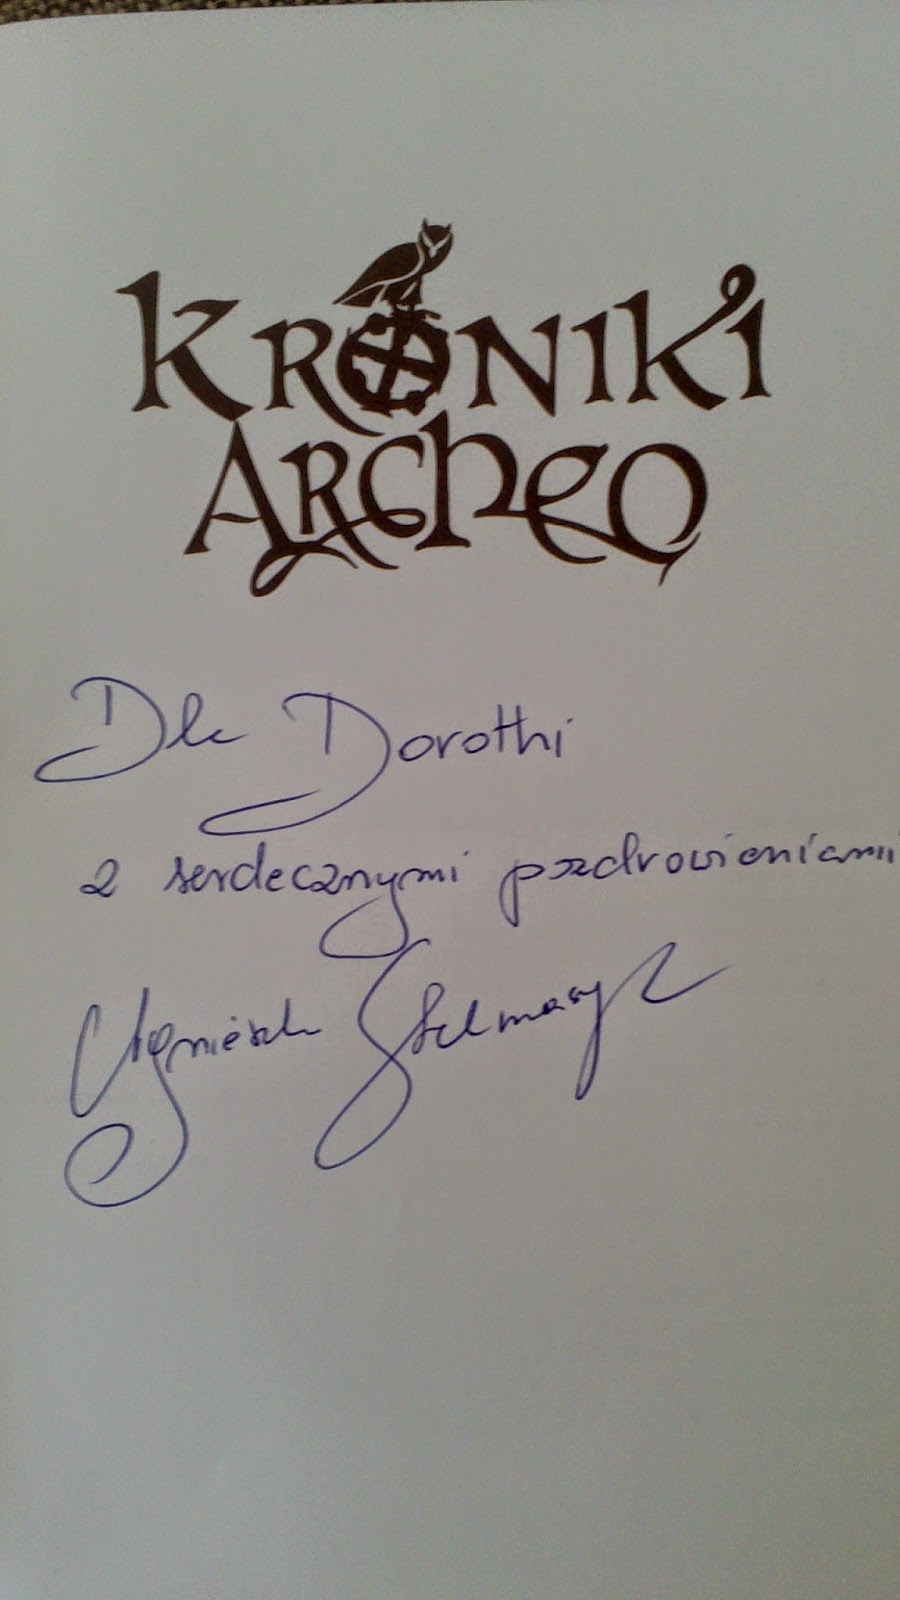 KRONIKI
ARCHEO
Dla Dorothi
z serdecznymi pozdrowieniami
Agnieszka Stelmaszyk